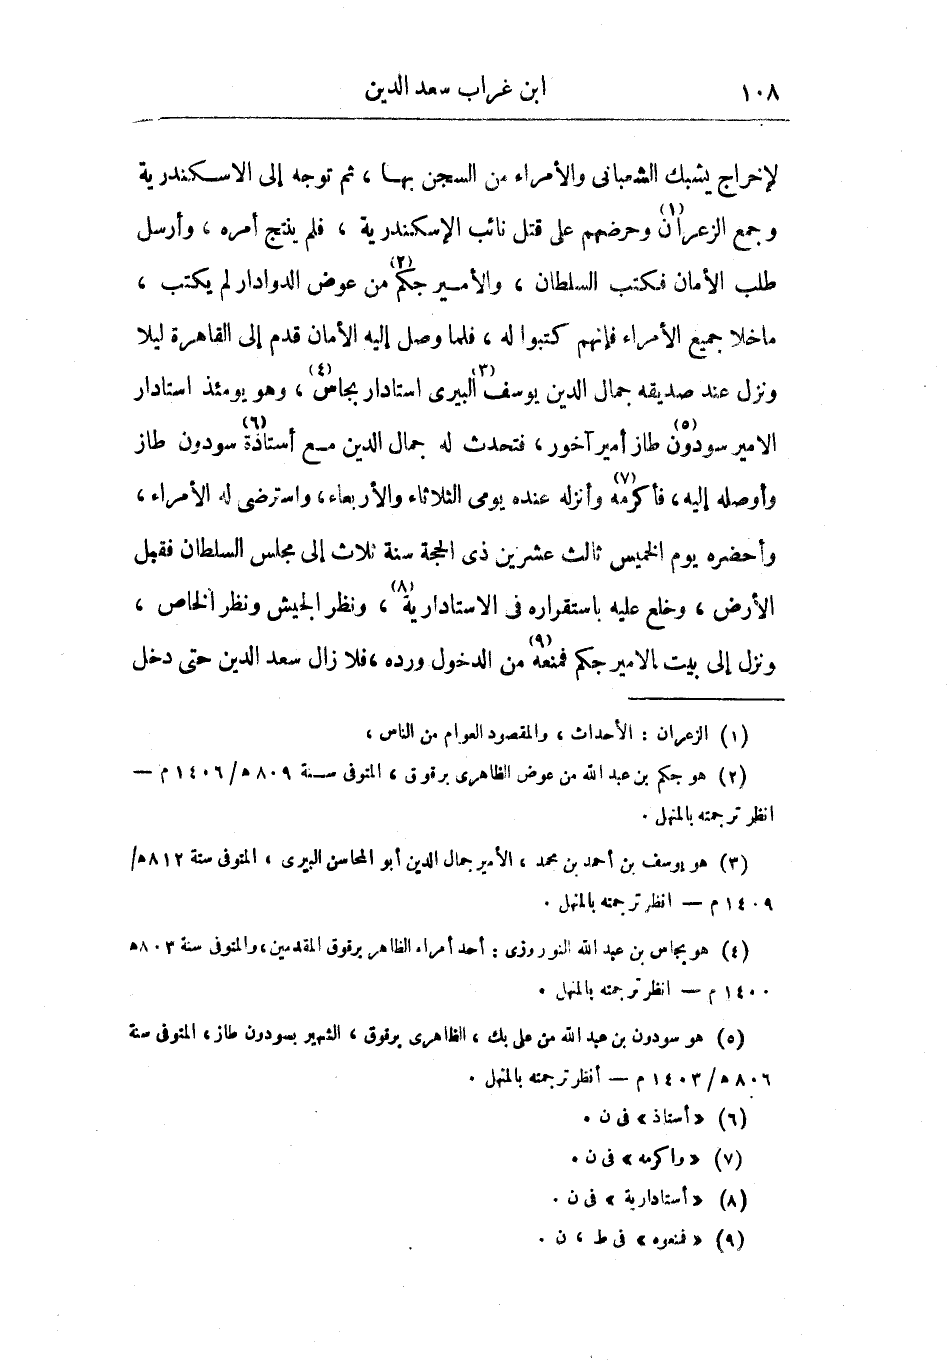 ١٠٨
ابن غراب سعد الدين
لإخراج يشبك الشعبانى والأمراء من السجن بهـا ، ثم توجه إلى الاسـكندرية
وجمع الزعران(١) وحرضهم على قتل نائب الإسكندرية ، فلم ينتج أمره ، وأرسل
طلب الأمان فكتب السلطان ، والأمـير جكم(٢) من عوض الدوادار لم يكتب ،
ماخلا جميع الأمراء فإنهم كتبوا له ، فلما وصل إليه الأمان قدم إلى القاهرة ليلا
ونزل عند صديقه جمال الدين يوسف(٣) البيرى استادار بجاص(٤) ، وهو يومئذ استادار
الامير سودون(٥) طاز أمير آخور ، فتحدث له جمال الدين مـع أستاذة(٦) سودون طاز
وأوصله إليه ، فأكرمه(٧) وأنزله عنده يومى الثلاثاء والأربعاء ، واسترضى له الأمراء ،
وأحضره يوم الخميس ثالث عشرين ذى الحجة سنة ثلاث إلى مجلس السلطان فقبل
الأرض ، وخلع عليه باستقراره فى الاستادارية(٨) ، ونظر الجيش ونظر الخاص ،
ونزل إلى بيت الامير جكم فمنعه(٩) من الدخول ورده ، فلا زال سعد الدين حتى دخل
(١) الزعران : الأحداث ، والمقصود العوام من الناس ،
(٢) هو جكم بن عبد الله من عوض الظاهرى برقوق ، المتوفى سـنة ٨٠٩ ھ/ ١٤٠٦ م —
انظر ترجمته بالمنهل .
(٣) هو يوسف بن أحمد بن محمد ، الأمير جمال الدين أبو المحاسن البيرى ، المتوفى سنة ٨١٢ھ/
١٤٠٩ م — انظر ترجمته بالمنهل .
(٤) هو بجاص بن عبد الله النوروزى : أحد أمراء الظاهر برقوق المقدمين ، والمتوفى سنة ٨٠٣ھ
١٤٠٠ م — انظر ترجمته بالمنهل .
(٥) هو سودون بن عبد الله من على بك ، الظاهرى برقوق ، الشهير بسودون طاز ، المتوفى سنة
٨٠٦ ھ/ ١٤٠٣ م — أنظر ترجمته بالمنهل .
(٦) «أستاذ» فى ن .
(٧) «واكرمه» فى ن .
(٨) «أستادارية» فى ن .
(٩) «فمنعوه» فى ط ، ن .